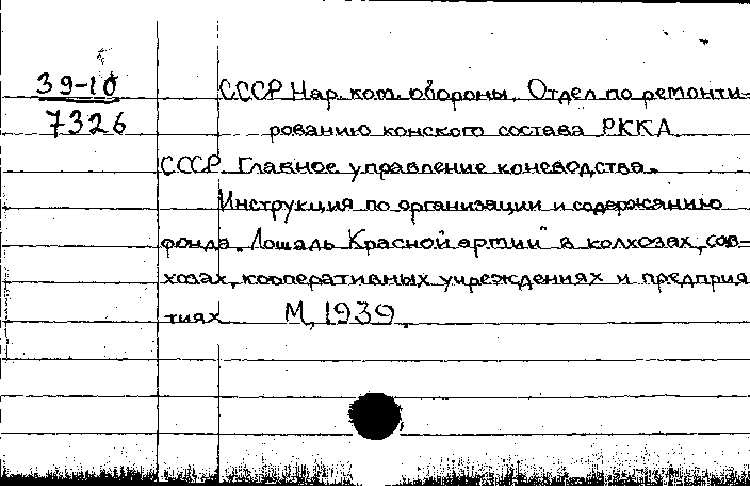 39-10
7326
СССР Нар. ком. обороны. Отдел по ремонти-
рованию конского состава РККА
СССР. Главное управление коневодства.
Инструкция по организации и содержанию
фонда „Лошадь Красной армии" в колхозах, сов-
хозах, кооперативных учреждениях и предприя
тиях М, 1939.